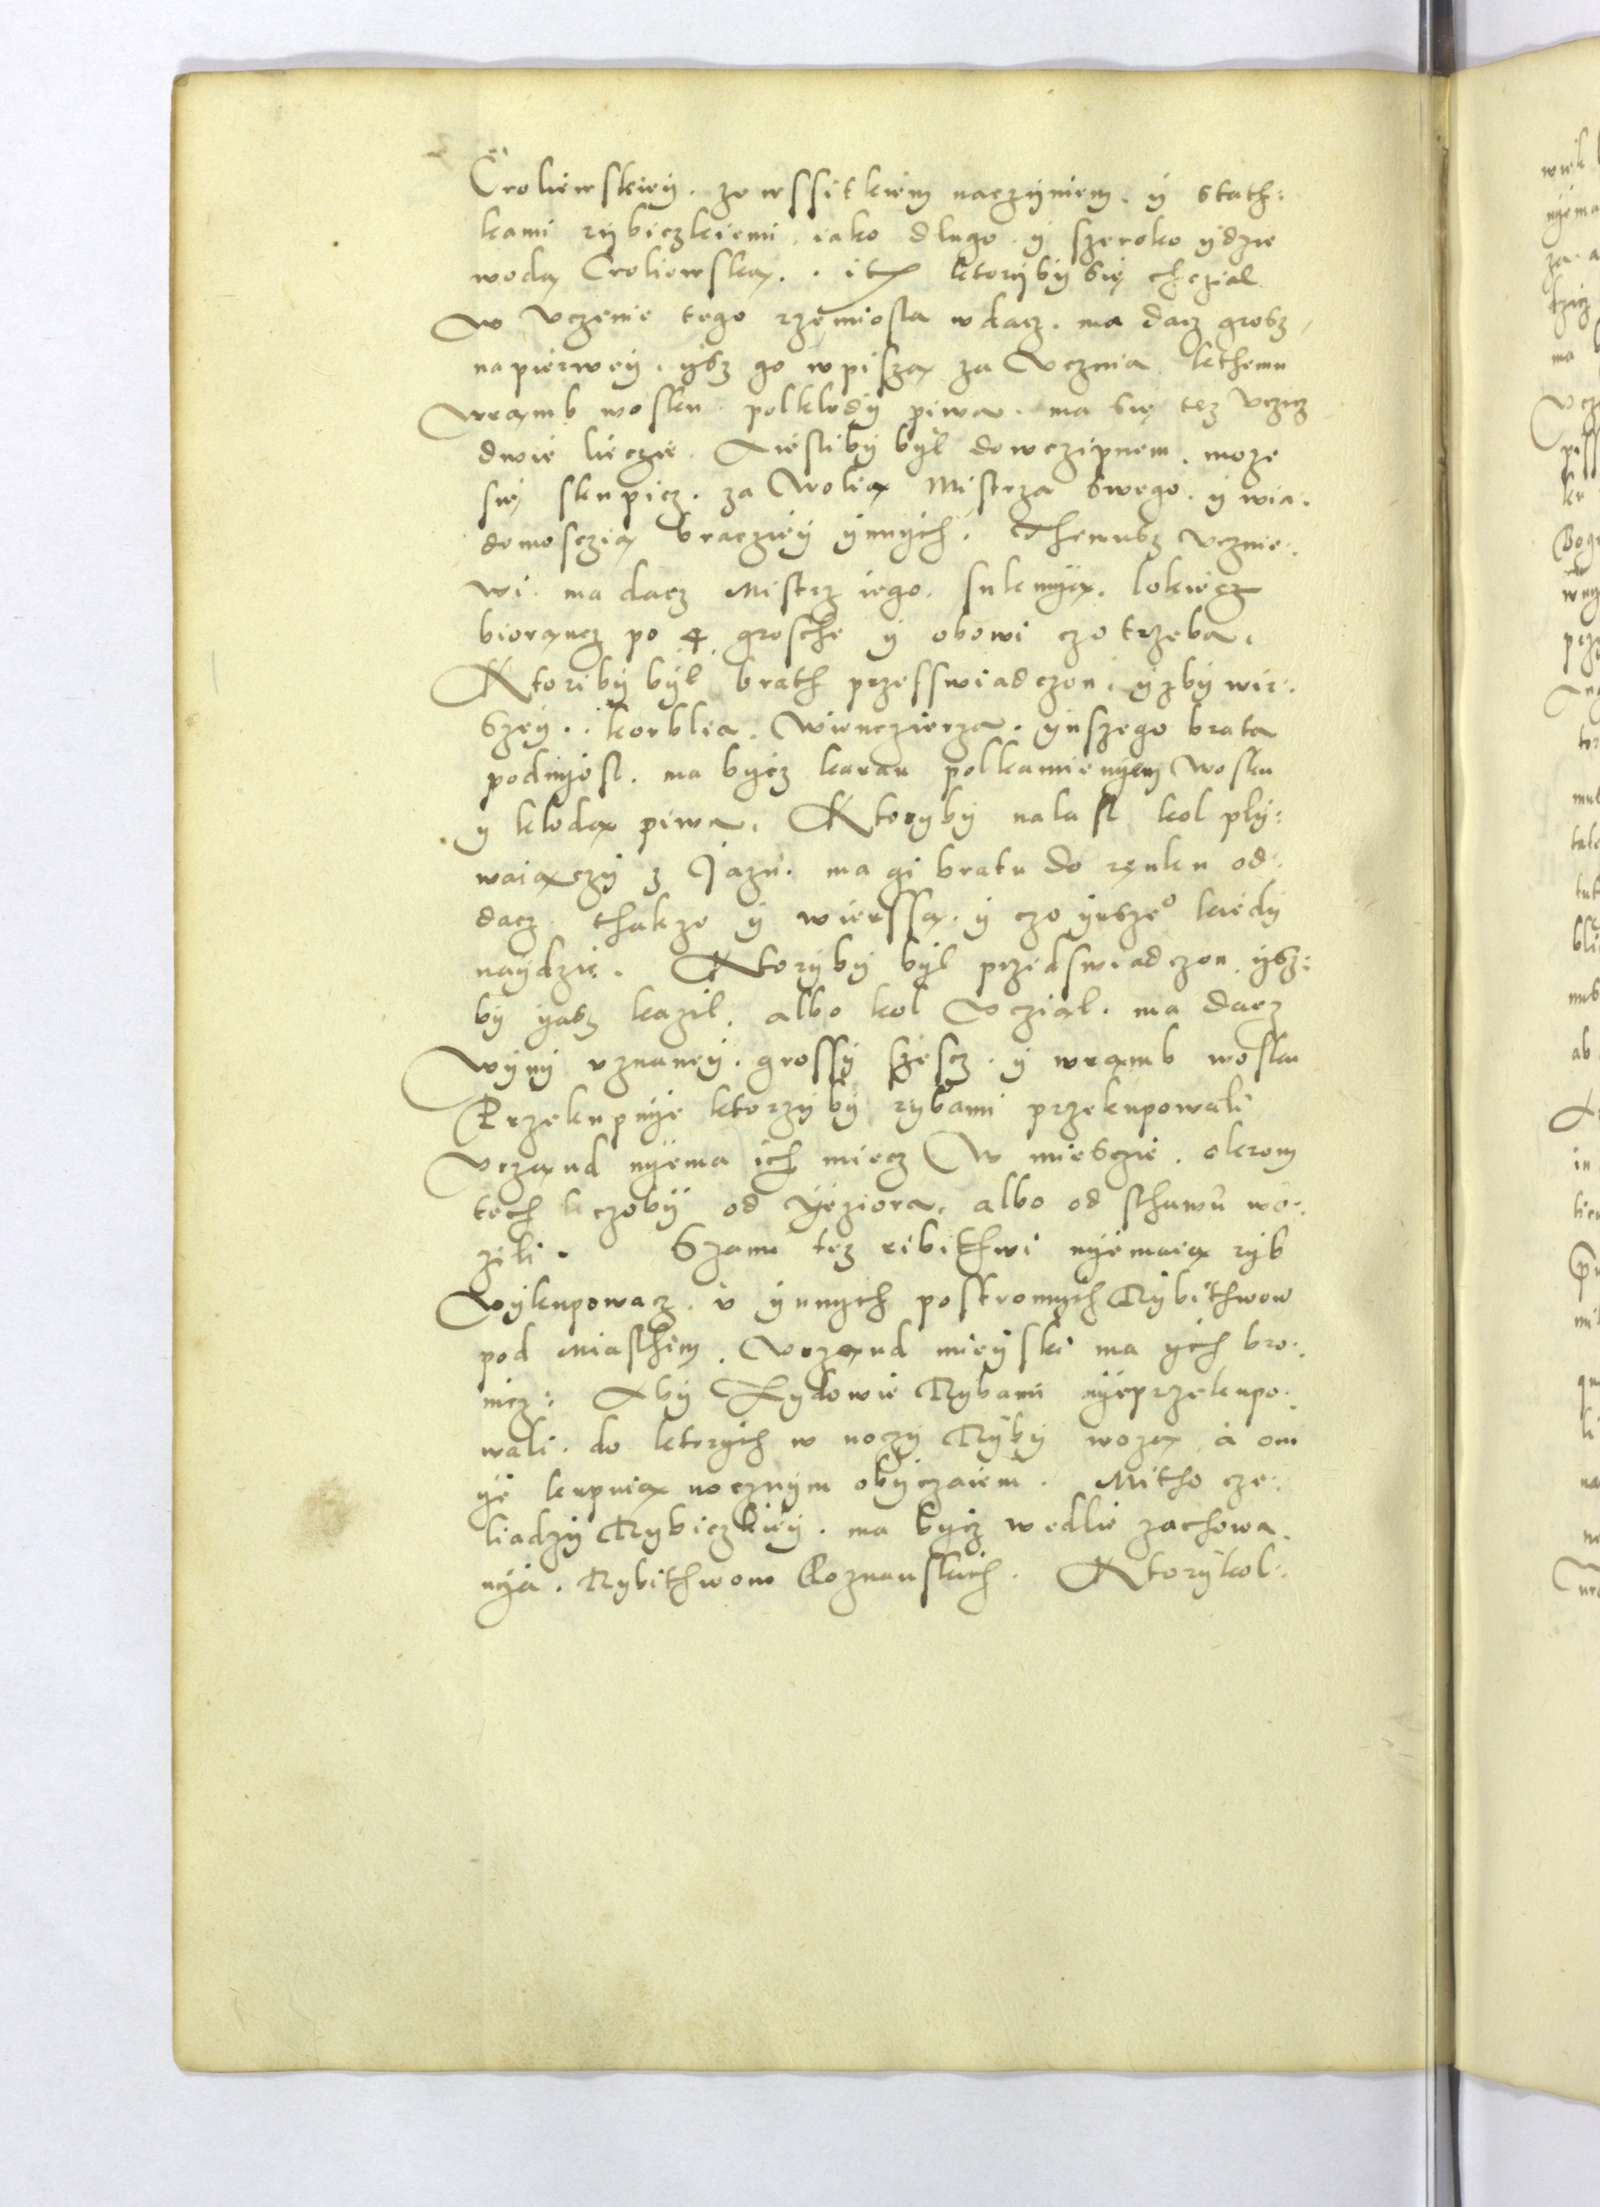 Croliewskiey. ze wssitkiem naczyniem. y stath:
kami rybiczkiemi. iako długo. y szeroko ydzie
woda Croliewska. . it ktorÿbÿ się chczial
w vczenie tego rzemiosła wdacz. ma dacz grosz
napierwey. ysz go wpisza za Vcznia. kthemu
wramb wosku. polklody piwa. ma się tez vczicz
dwie liecie. Iesliby był dowczipnem. moze
się skupicz. za Wolia Mistrza swego. y wia.
domosczia bracziey ynnych. Themusz vcznie:
wi. ma dacz Mistrz iego. suknya. lokiecz
biorancz po 4 grosche y obowi czo trzeba.
Ktoriby był brath przesswiadczon. yzby wir:
szey. . korblia. Wienczierza. ynszego brata
podnyosl. ma bycz karan polkamienyem wosku
y kloda piwa. Ktoryby nalasl kol plÿ:
waiaczy z Jazu. ma gi bratu do ręnku od:
dacz. thakze y wierssa. y czo ynsze° kiedy
naydzie. Ktoryby był przeswiadczon. ysz:
by yasz kazil. albo kol vczial. ma dacz
winy vznaney. grossy szescz. y wramb wosku
Przekupnye ktorzyby rybami przekupowali
vrzand nyema ich miecz w miesczie. okrom
tech kczoby od yeziora. albo od sthawu wo:
zili. Szami tez ribithwi nyemaia ryb
Wykupowacz. v ynnych postronnych Rybithwow
pod Miasthem. Vrzand mieyski ma ych bro:
nicz: Aby Zydowie Rybami nyeprzekupo:
wali. do ktorych w noczy Ryby woza. a oni
ye kupuia nocznym obyczaiem. Mitho cze:
liadzy Rybiczkiey. ma bycz wedlie zachowa.
nya. Rybithwow Poznanskich. Ktorykol: